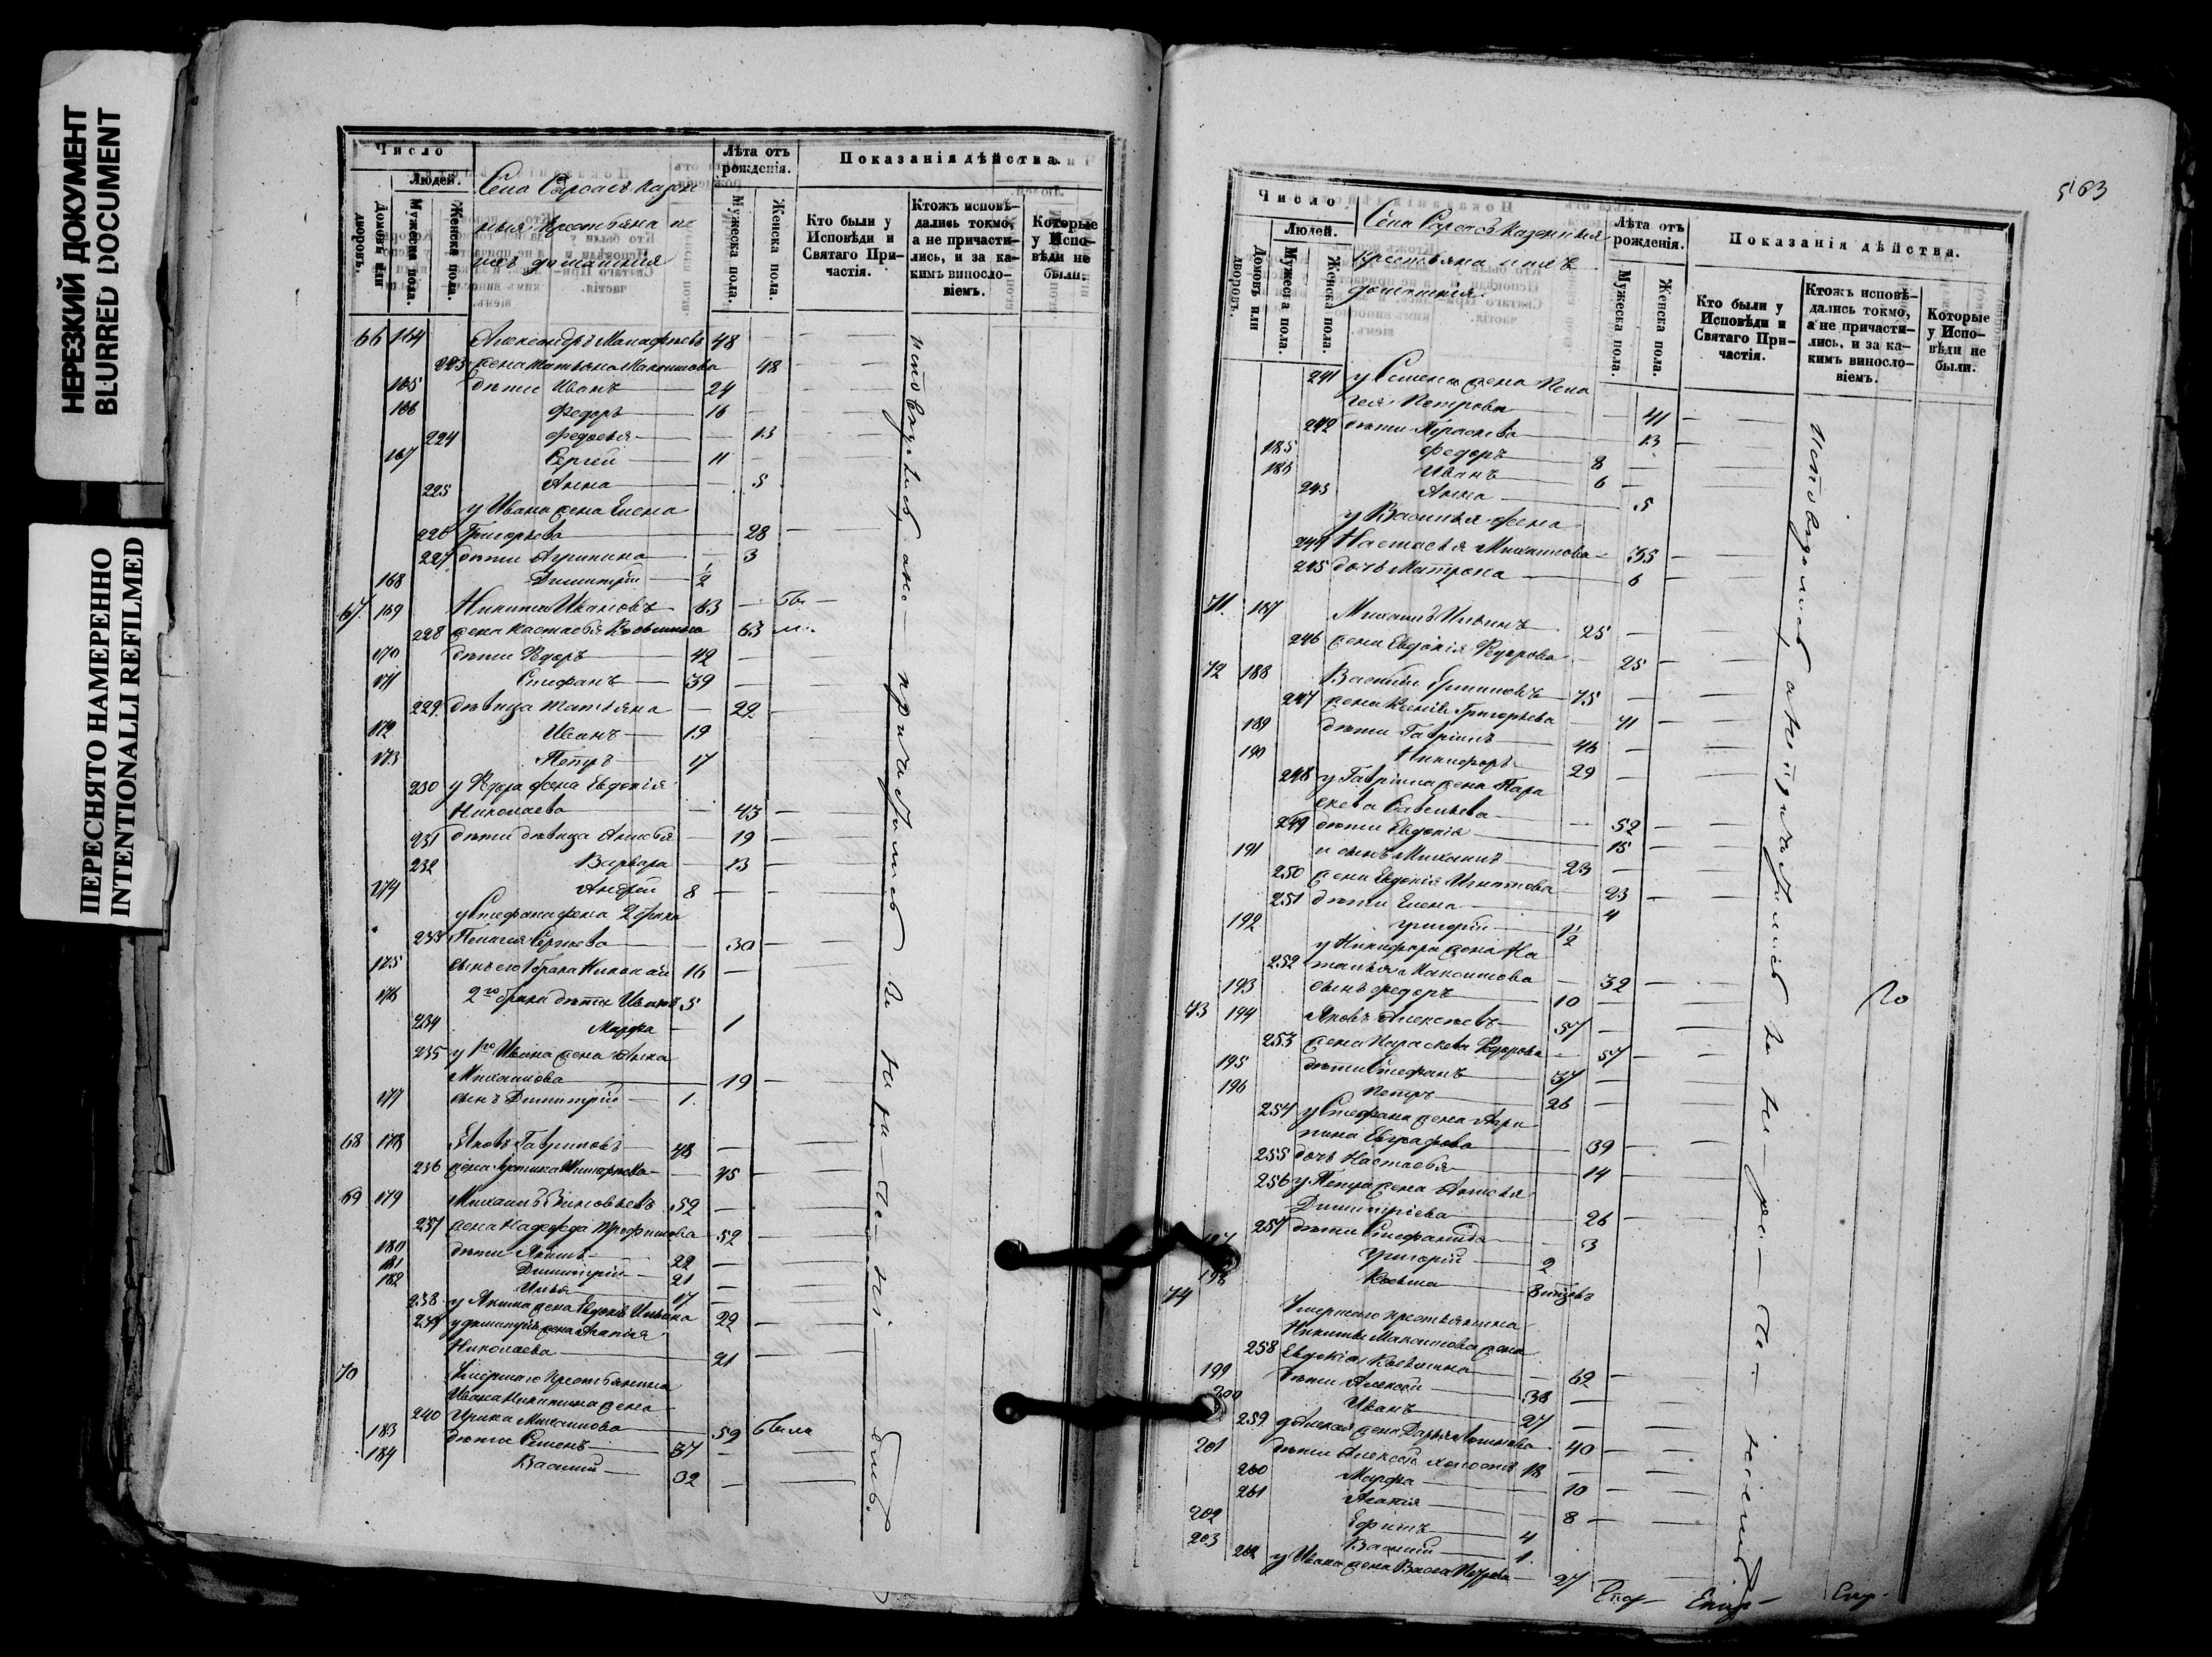 НЕРЕЗКИЙ ДОКУМЕНТ
BLURRED DOCUMENT
ПЕРЕСНЯТО НАМЕРЕННО
INTENTIONALLI REFILMED
Число
Людей.
Домовъ или дворовъ.
Мужеска пола.
Женска пола.
Село Сарсасъ казен
ныя крестьяна и
ихъ домашнія
Лѣта отъ рожденія.
Мужеска пола.
Женска пола.
Показанія дѣйства.
Кто были у Исповѣди и Святаго Причастія.
Ктожъ исповѣдались токмо, а не причастились, и за какимъ винословіемъ.
Которые у Исповѣди не были.
66 164 Александръ 48
223 жена Татьяна Максимова 48
165 дѣти Иванъ 24
166 Федоръ 16
224 Федосья 13
167 Сергей 11
225 Анна 5
у Ивана жена Елена
226 Григорьева 28
227 дѣти Агрипина 3
168 Димитрій 1/2
67. 169 Никита Ивановъ 63
228 жена Настасья 63
170 дѣти Федоръ 42
171 Стефанъ 39
229 дѣвица Татьяна 22
172 Иванъ 19
173 Петръ 17
230 у Федора жена Евдокія
Николаева 43
231 дѣти дѣвица Анисья 19
232 Варвара 13
174 Андрей 8
у Стефана жена 2 брака
233 Пелагея Сергѣева 30
175 сынъ его 1 брака Николай 16
176 2го брака дѣти Иванъ 5
234 Марфа 1
235 у 1го Ивана жена Анна
Михаилова 19
177 сынъ Димитрій 1.
68 178 Яковъ Гавриловъ 48
236 жена 45
69 179 Михаилъ 52
237 жена Надежда Трофимова 52
180 дѣти Якимъ 22
181 Димитрій 21
182 Илья 17
238 у Якима жена Евдокія Ильина 22
239 у Димитрія жена Агапія
Николаева 21
70 Умершаго крестьянина
Ивана Никитина жена
240 Ирина Михаилова 59 была
183 дѣти Семенъ 37
184 Василій 32
исповѣдались, а не причастились за
563
Число
Людей.
Домовъ или дворовъ.
Мужеска пола.
Женска пола.
Села Сарсасъ казенныя
крестьяна и ихъ
домашнія.
Лѣта отъ рожденія.
Мужеска пола.
Женска пола.
Показанія дѣйства.
Кто были у Исповѣди и Святаго Причастія.
Ктожъ исповѣдались токмо, а не причастились, и за какимъ винословіемъ.
Которые у Исповѣди не были.
241 у Семена жена Пела
гея Петрова 41
242 дѣти Параскева 13
185 Федоръ 8
186 Иванъ 6
243 Анна 5
у Василья жена
244 Настасья Михаилова 35
245 дочь Матрона 6
71. 187 Михаилъ Ильинъ 25
246 жена Евдокія Федорова 25
72 188 Василій 75
247 жена Ксенія Григорьева 71
189 дѣти Гавріилъ 46
190 Никифоръ 29
248 у Гавріила жена Пара
скева Савельева 52
249 дѣти Евдокія 15
191 и сынъ Михаилъ 23
250 жена Евдокія Игнатова 23
251 дѣти Елена 4
192 Григорій 1 1/2
у Никифора жена На
252 талья Максимова 32
193 сынъ Федоръ 10
73 194 Яковъ Алексѣевъ 57
253 жена Параскева Федорова 57
195 дѣти Стефанъ 37
196 Петръ 26
254 у Стефана жена Агри
пина Евграфова 39
255 дочь Настасья 14
256 у Петра жена Анисья
Димитріева 26
257 дѣти Стефанида 3
197 Григорій 2
198 Косьма
74 Умершаго крестьянина
Никиты Максимова жена
258 Евдокія Косьмина 62
199 дѣти Алексей 38
200 Иванъ 27
259 у Алексея жена Дарья 40
201 дѣти Алексей холостъ 18
260 Марфа 10
261 Агапія 8
202 Ефимъ 4
203 Василій 1.
262 у Ивана жена Васса Петрова 27
исповѣдались, а не причастились за